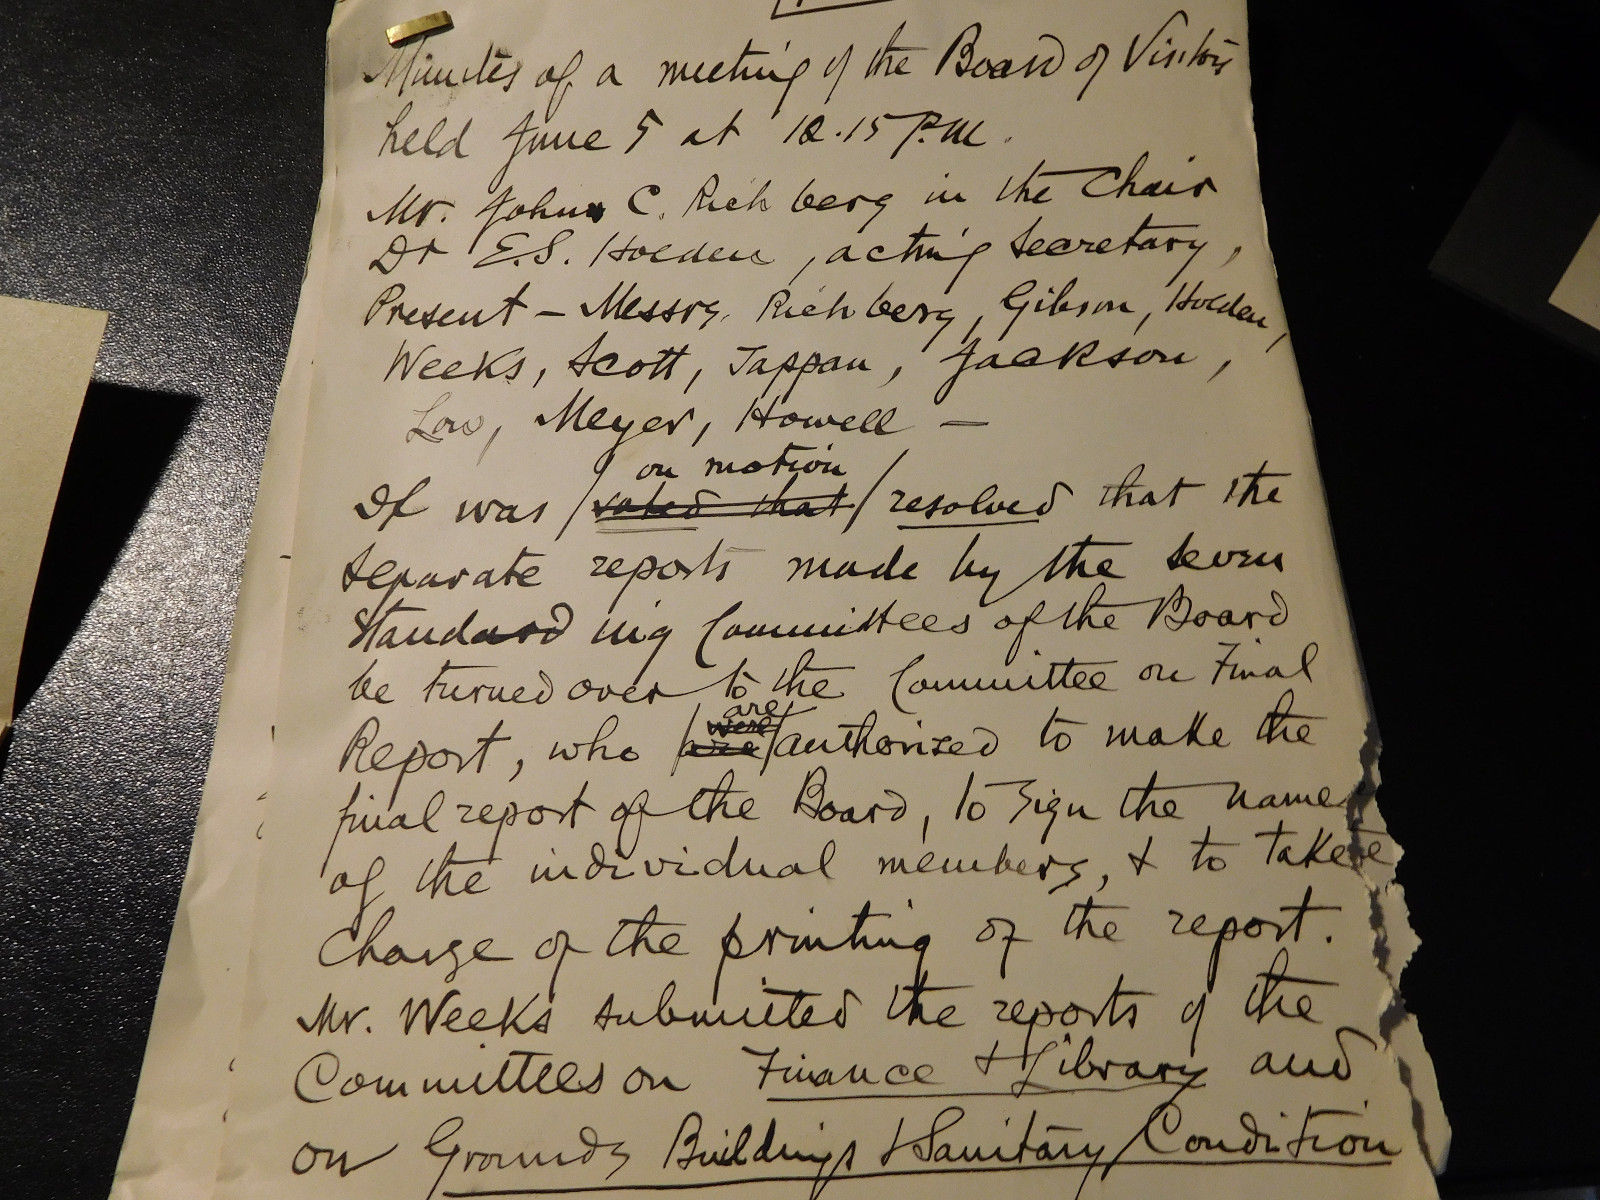 Minutes of a meeting of the Board of Visitors
held June 5 at 12.15 P.M.
Mr. John C. Richberg in the Chair
Dr E.S. Holden, acting Secretary,
Present - Messrs. Richberg, Gibson, Holden,
Weeks, Scott, Tappan, Jackson,
Low, Meyer, Howell -
on motion
It was / voted that / resolved that the
separate reports made by the seven
Standard ing Committees of the Board
be turned over to the Committee on Final
are
were
Report, who / are / authorized to make the
final report of the Board, to sign the names
of the individual members, & to take
charge of the printing of the report.
Mr. Weeks submitted the reports of the
Committees on Finance & Library and
on Grounds Buildings & Sanitary Condition